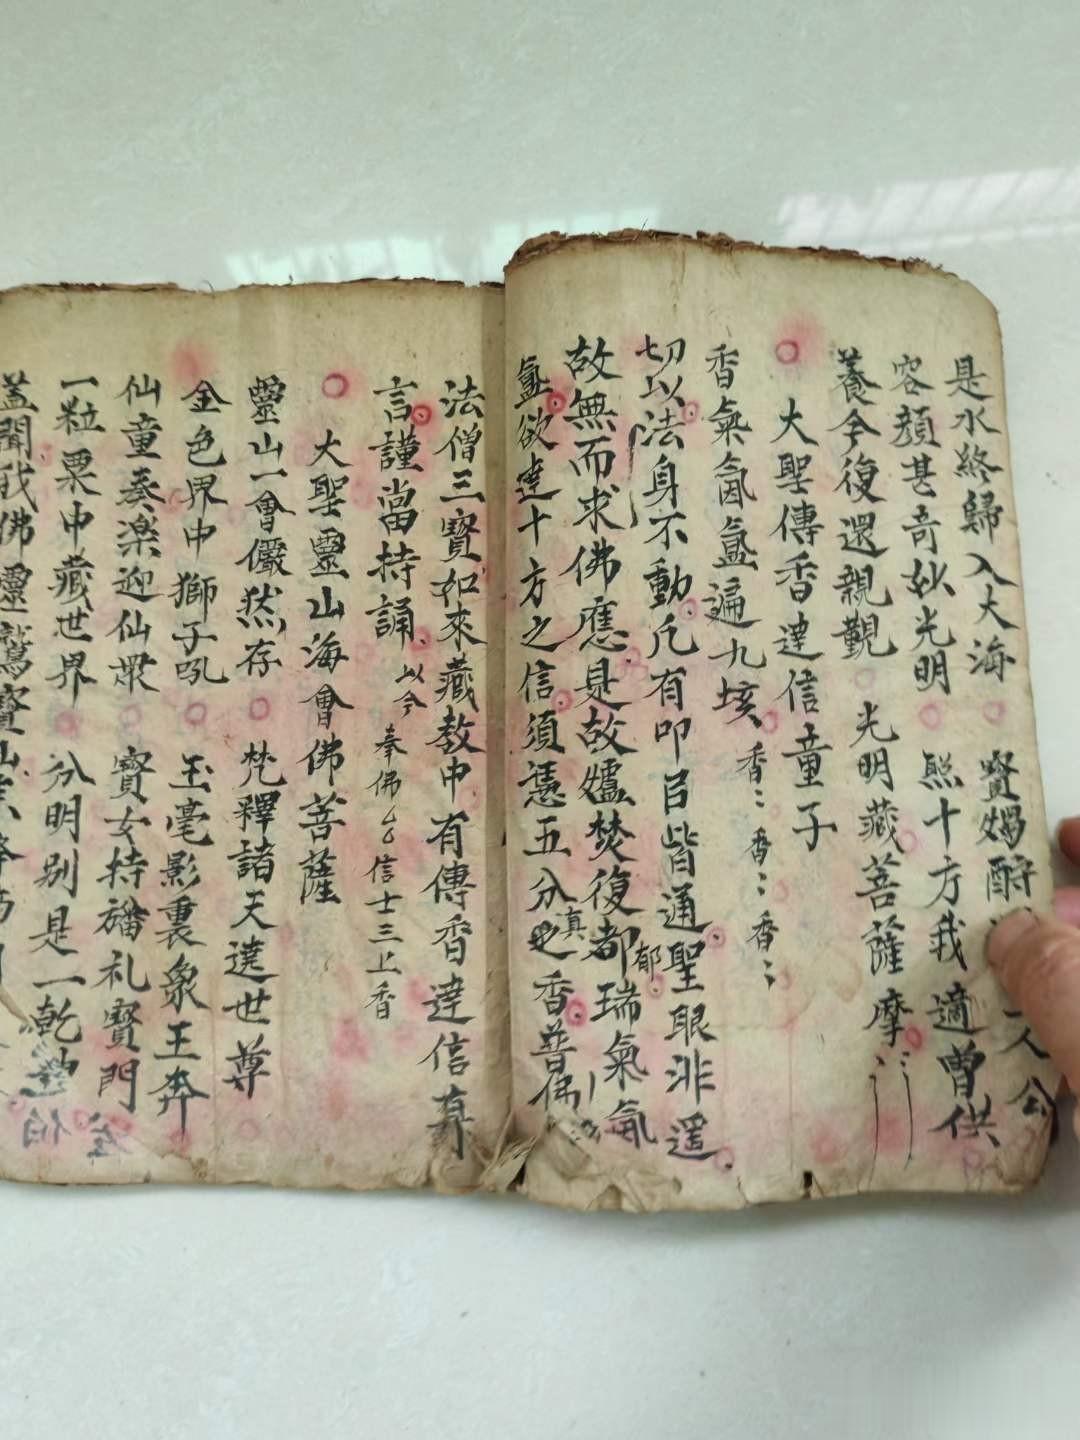 是水終歸入大海 寶燭酧
人公
容顔甚奇妙光明 熙十方我適曽供
養今復還親觀 光明藏菩薩摩
大聖傳香達信童子
香氣氤氳遍九垓 香 香 香
切以法身不動凡有叩㠯皆通聖眼非遥
故無而求佛應是故爐焚復都瑞氣氤
郁
氳欲達十方之信須憑五分之香普
真
法僧三寳如來藏教中有傳香達信真
言謹當持誦 以今 奉佛厶厶信士三上香
大聖靈山海會佛菩薩
靈山一會儼然存 梵釋諸天遶世尊
金色界中獅子吼 玉毫影裏象王奔
仙童奏楽迎仙衆 寳女持旛礼寳門
一粒粟中藏世界 分明别是一乾坤
蓋聞我佛靈鷲寳山